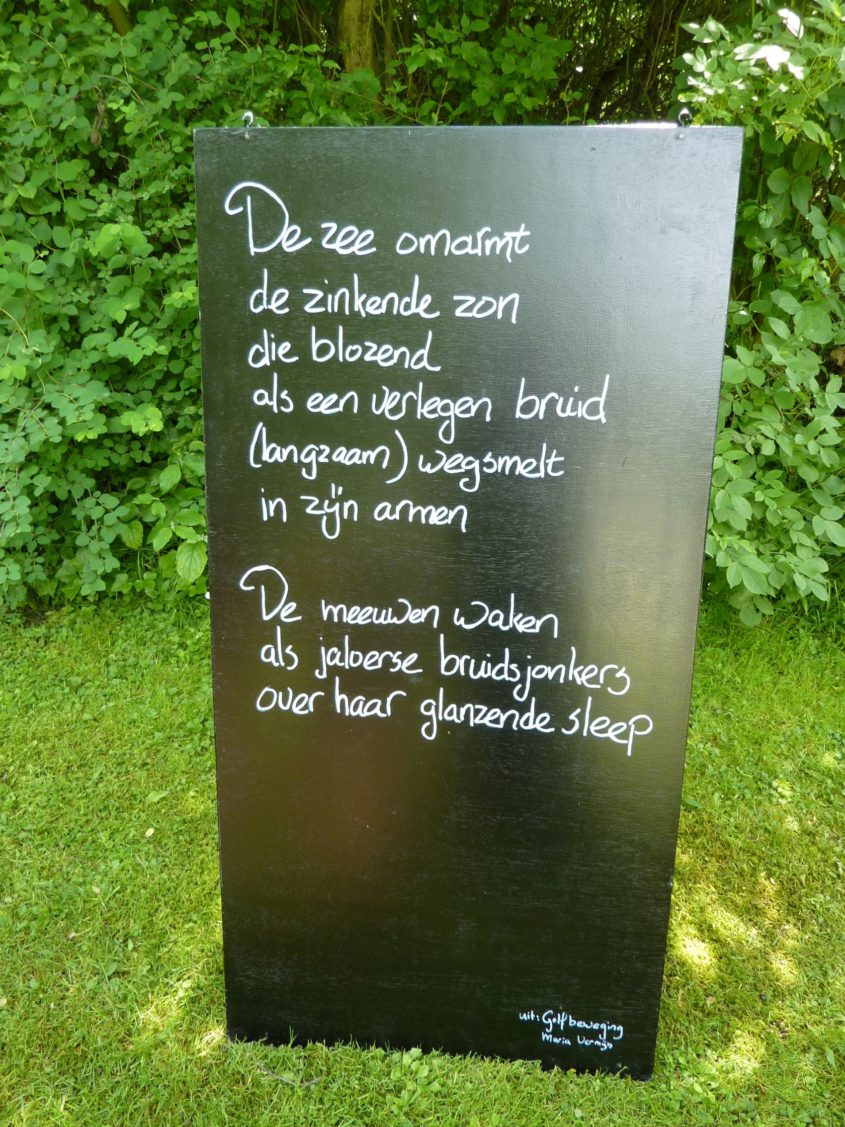 De zee omarmt
de zinkende zon
die blozend
als een verlegen bruid
(langzaam) wegsmelt
in zijn armen
De meeuwen waken
als jaloerse bruidsjonkers
over haar glanzende sleep
uit: Golfbeweging
Maria